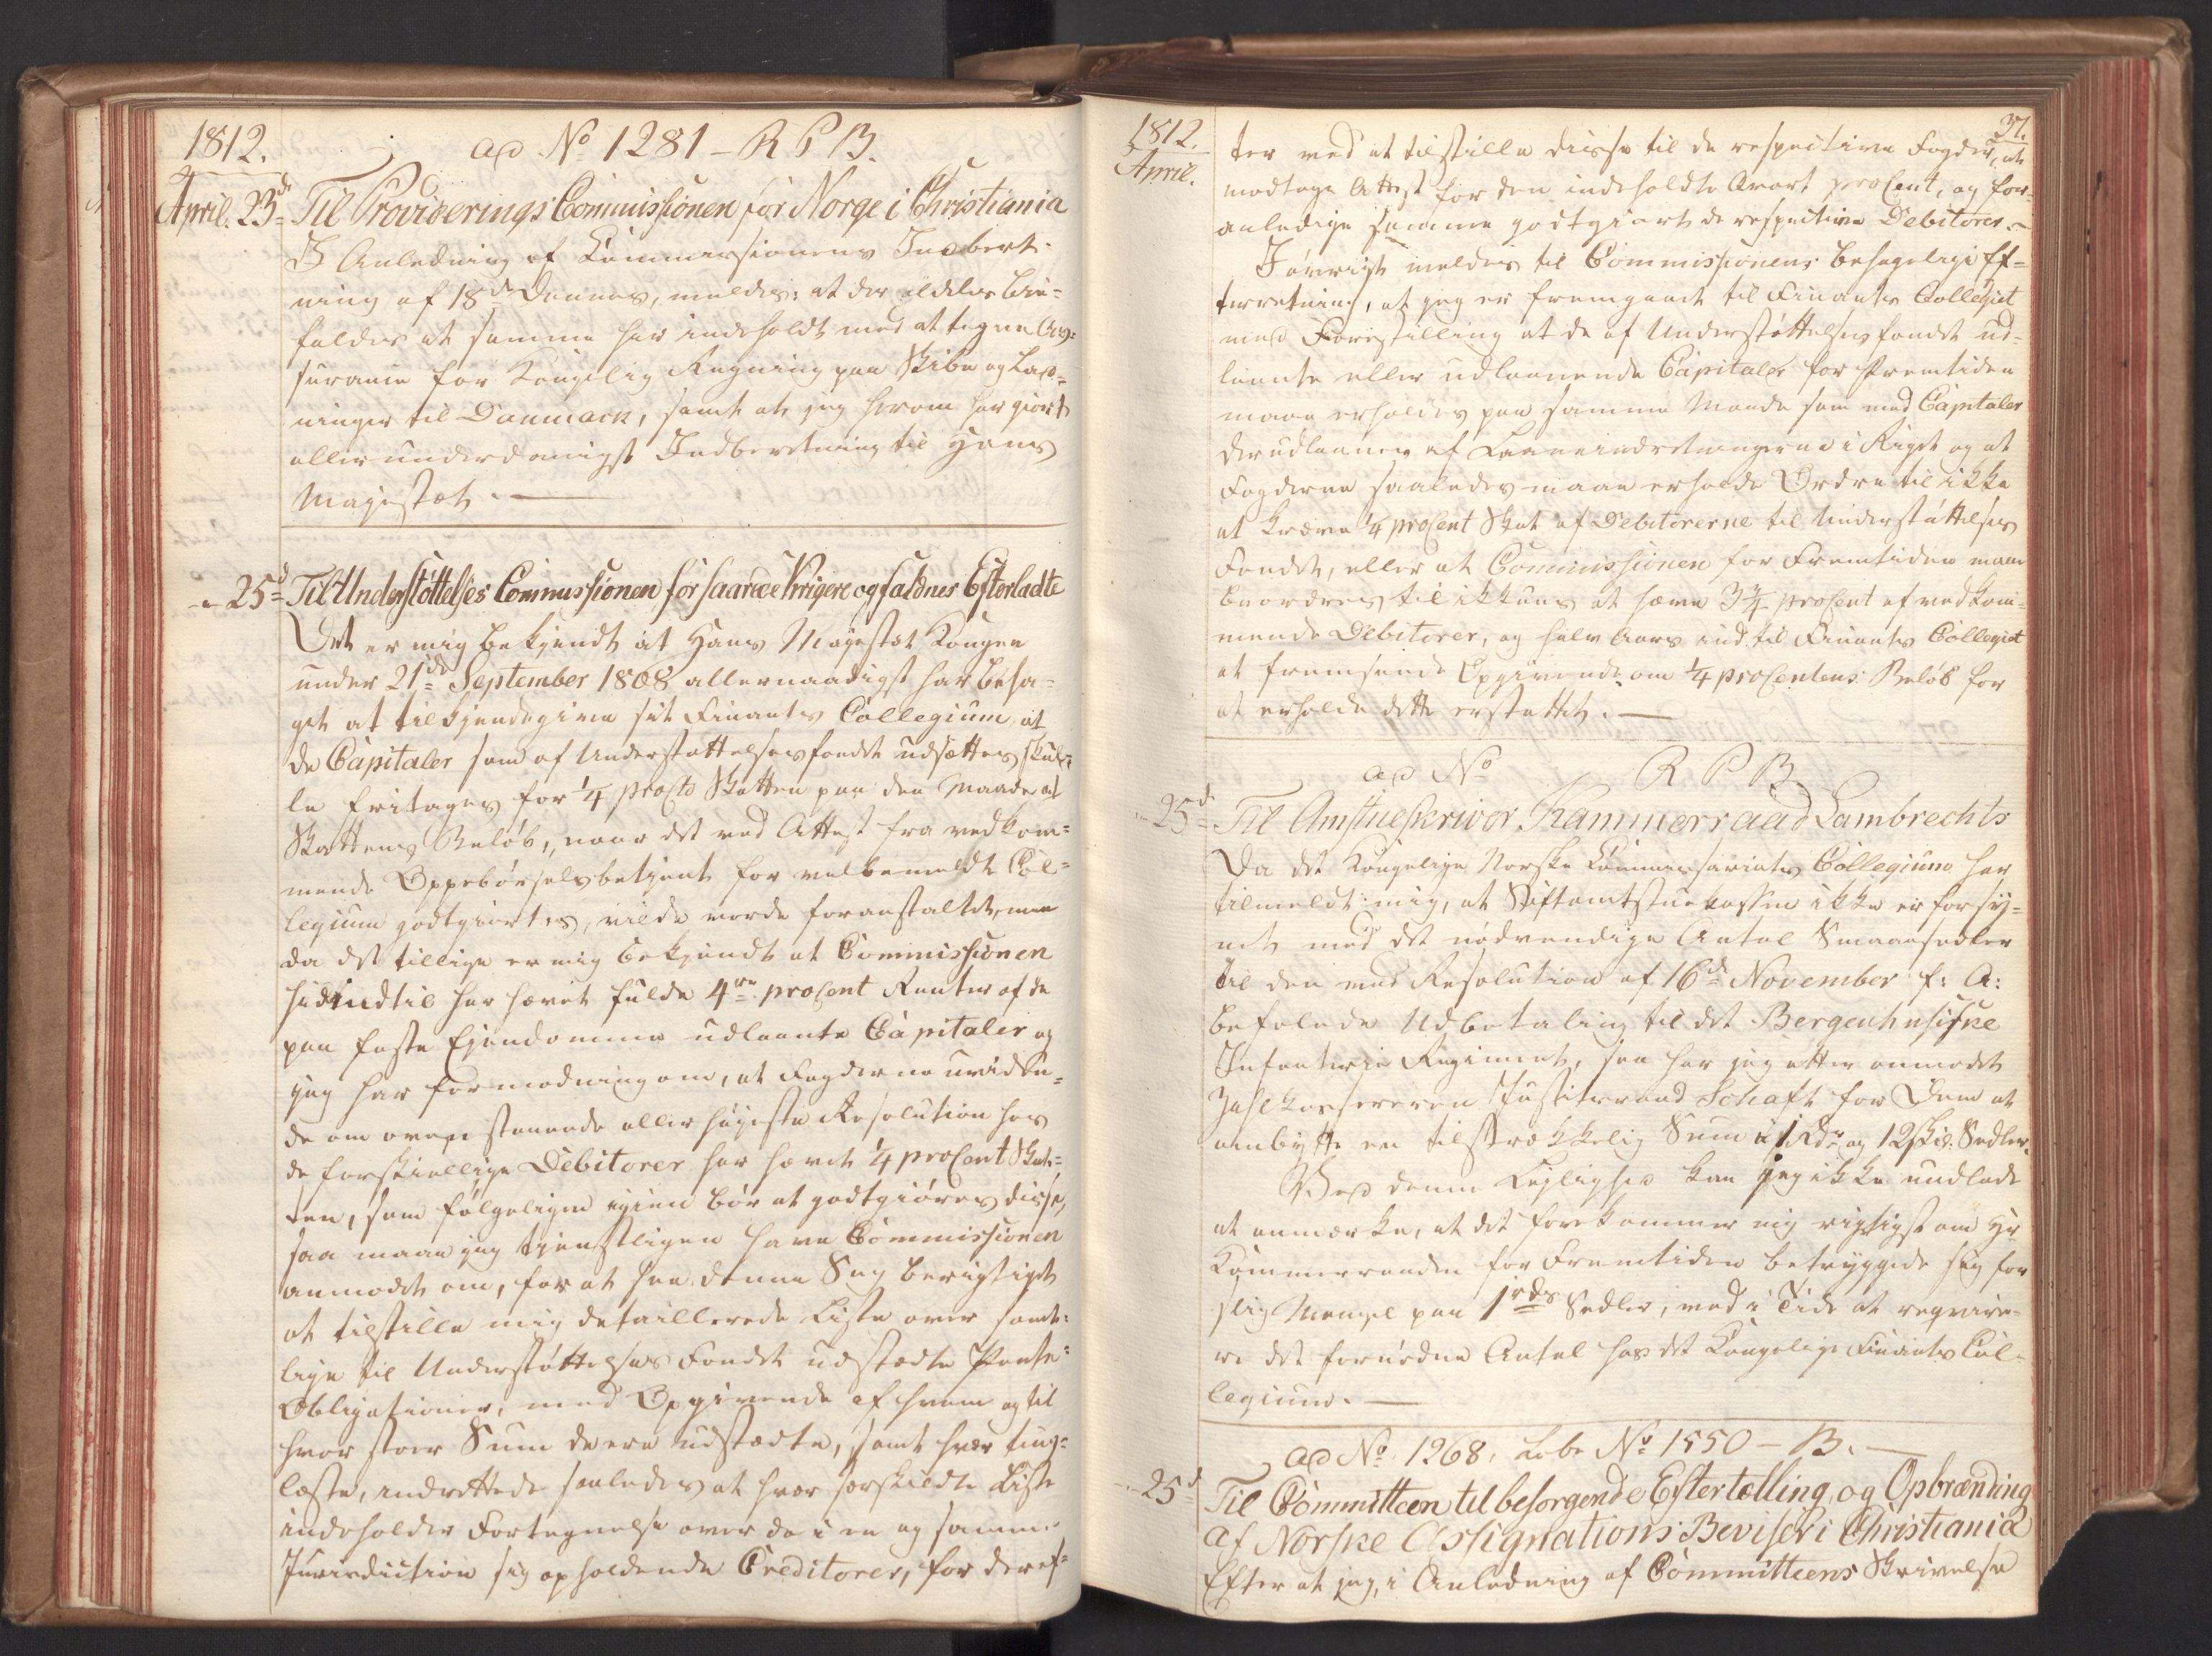 1812.
ad No 1281 – R P B.
April. 23d
Til Provideerings Commissionen for Norge i Christiania
I Anledning af Commissionens Indberet-
ning af 18de Dennes, meldes: at det aldeles bi-
faldes at samme har indeholdt med at tegne As-
surance for Kongelig Regning paa Skibe og Lad-
ninger til Danmark, samt at jeg herom har giort
allerunderdanigst Indberetning til Hans
Majestæt. —
– 25d
Til Understøttelses Commissionen for saarede Krigere og faldnes Efterladte
Det er mig bekjendt at Hans Majestæt Kongen
under 21de September 1808 allernaadigst har beha-
get at tilkjendegive sit Finants Collegium, at
de Capitaler som af Understøttelsesfondet udsættes skul-
le fritages for 1/4 procto Skatten paa den Maade at
Skattens Beløb, naar det ved Attest fra vedkom-
mende Oppebørselsbetjent for velbemeldte Col-
legium godtgiørtes, vilde vorde foranstaltet, men
da det tillige er mig bekjendt at Commissionen
hidindtil har hævet fulde 4re procent Renter af de
paa faste Ejendomme udlaante Capitaler og
jeg har formodning om, at Fogderne uviden-
de om ovenstaaende allerhøjeste Resolution hos
de forskiellige Debitorer har hævet 1/4 procent Skat-
ten, som følgeligen igien bør at godtgiøres disse,
saa maae jeg tjenstligen have Commissionen
anmodet om, for at faa denne Sag berigtiget
at tilstille mig detaillerede Liste over samt-
lige til Understøttelses Fondet udstædte Pante-
Obligationer, med Opgivende af hvem og til
hvor stor Sum de ere udstædte, samt hvor ting-
læste, indrettede saaledes at hver særskildte Liste
indeholder Fortegnelse over de i en og samme
Jurisdiction sig opholdende Creditorer, for deref-
1812.
April.
37.
ter ved at tilstille disse til de respective Fogder, at
modtage Attest for den indeholdte Qvart procent, og for-
anledige samme godtgiort de respective Debitorer. –
Iøvrigt meldes til Commissionens behagelige Ef-
terretning, at jeg er fremgaaet til Finants Collegiet
med Forestilling at de af Understøttelsesfondet ud-
laante eller udlaanende Capitaler for Fremtiden
maae erholdes paa samme Maade som med Capitaler
der udlaanes af Laaneindretningerne i Riget og at
Fogderne saaledes maae erholde Ordre til ikke
at kræve 1/4 procent Skat af Debitorerne til Understøttelses
Fondet, eller at Commissionen for Fremtiden maae
beordres til ikkuns at hæve 3 3/4 procent af vedkom-
mende Debitorer, og halv Aars ind til Finants Collegiet
at fremsende Opgivende om 1/4 procentens Beløb for
at erholde dette erstattet. —
ad No R P B
– 25d
Til Amtstueskriver Kammerraad Lambrechts
Da det Kongelige Norske Commissariats Collegium har
tilmeldt mig, at Stiftamtstuekassen ikke er forsy-
net med det nødvendige Antal Smaaesedler
til den med Resolution af 16de November f: A:
befalede Udbetaling til det Bergenhusiske
Infanterie Regiment, saa har jeg atter anmodet
Zahlkassereren Justitsraad Schaft for Dem at
ombytte en tilstrækkelig Sum i 1 Rdr og 12 skil. Sedler.
Ved denne Lejlighed kan jeg ikke undlade
at anmærke, at det forekommer mig rigtigst om Hr
Kammerraaden for Fremtiden betryggede sig for
slig Mangel paa 1 rds Sedler, ved i Tide at reqvire-
re det fornødne Antal hos det Kongelige Finants Col-
legium. —
ad No 1268, Løbe No 1550 – B. —
– 25d
Til Committeen til besørgende Eftertælling og Opbrænding
af Norske Assignations Beviser i Christiania
Efter at jeg, i Anledning af Committeens Skrivelse